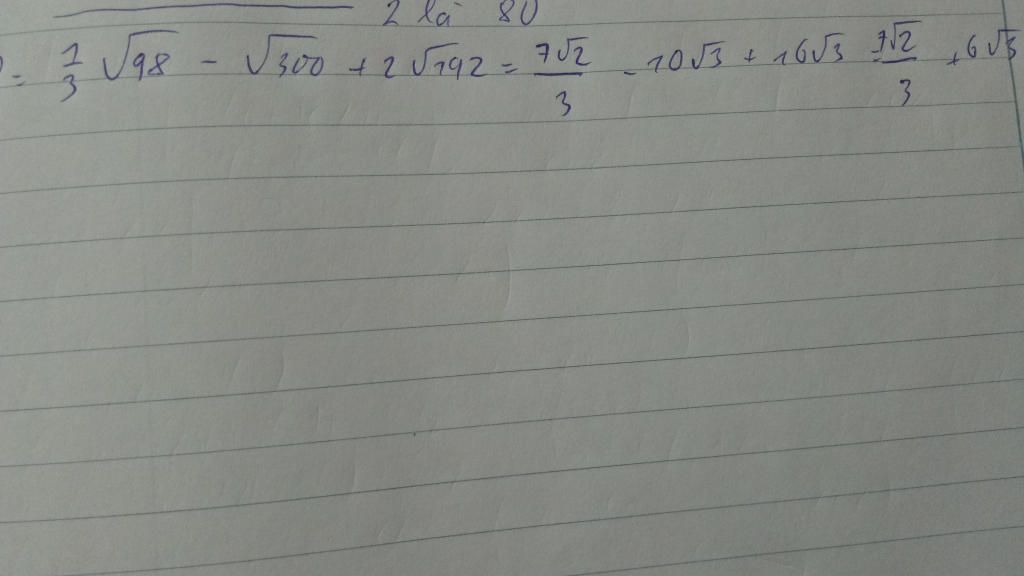 2 là 80
= 1/3 √98 - √300 + 2√192 = 7√2/3 - 10√3 + 16√3 = 7√2/3 + 6√3